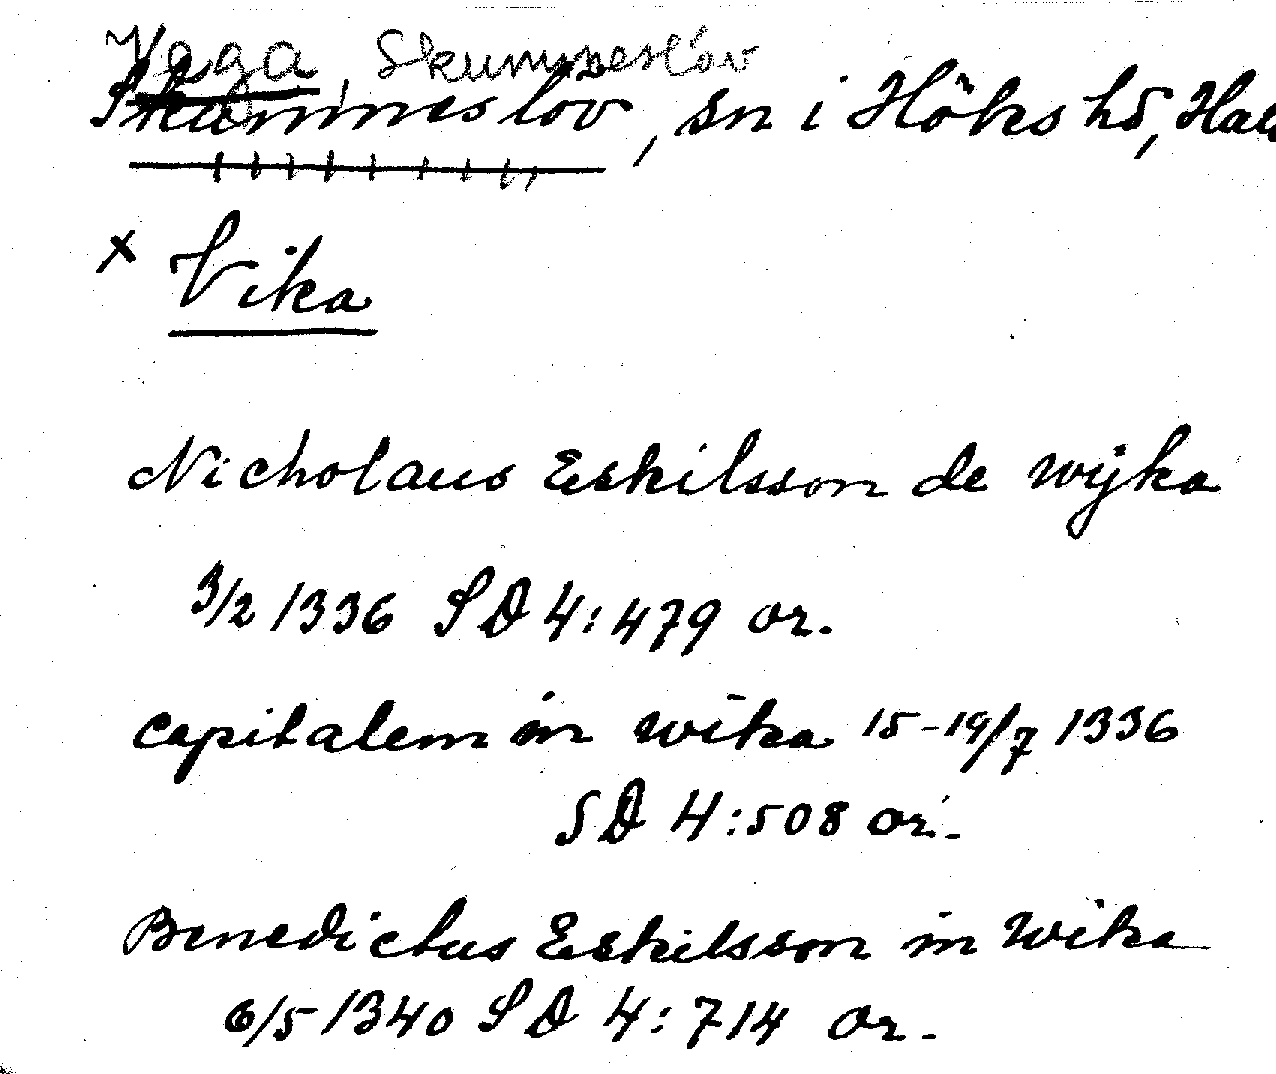 Våga, Skummeslöv
Skummeslöv, sn i Höks hd, Hall
x Vika
Nicholaus Eskilsson de wijka
3/2 1336 SD 4:479 or.
capitalem in wika 15-19/7 1336
SD 4:508 or.
Benedictus Eskilsson in wika
6/5 1340 SD 4:714 or.